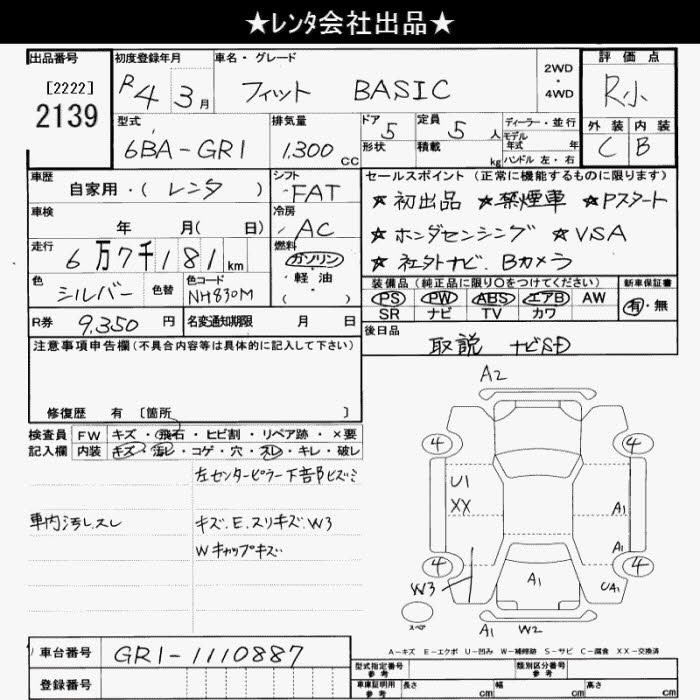 ★レンタ会社出品★
出品番号 初度登録年月 車名・グレード 2WD・4WD 評価点
[2222]
2139
R4 3月 フィット BASIC R小
型式 排気量 ドア 定員 ディーラー・並行 外装 内装
6BA-GR1 1,300CC 5 5人 モデル年式 年 C B
形状 積載 kg ハンドル 左・右
車歴 シフト セールスポイント(正常に機能するものに限ります)
自家用・(レンタ) FAT ★初出品 ★禁煙車 ★Pスタート
車検 冷房
年 月(日) AC ★ホンダセンシング ★VSA
走行 燃料
6万7千181km ガソリン ★社外ナビ.Bカメラ
軽油
( )
色 色替 色コード 装備品(純正品に限り○をつけてください) 新車保証書
シルバー NH830M PS PW ABS エアB AW 有・無
SR ナビ TV カワ
R券 9,350円 名変通知期限 月 日 後日品
取説 ナビSD
注意事項申告欄(不具合内容等は具体的に記入して下さい)
修復歴 有 [箇所 ]
検査員 FW キズ・飛石・ヒビ割・リペア跡・×要
記入欄 内装 キズ・汚レ・コゲ・穴・スレ・キレ・破レ
左センターピラー下部ヒズミ
車内汚レスレ キズ.E.スリキズ.W3
Wキャップキズ
A2
4 4
U1
XX A1
A1
4 4
W3 A1 UA1
スペア
A1 W2
A-キズ E-エクボ U-凹み W-補修跡 S-サビ C-腐食 XX-交換済
車台番号 GR1-1110887
型式指定番号 参考 類別区分番号 参考
登録番号
車庫証明用 参考 長さ cm 幅 cm 高さ cm